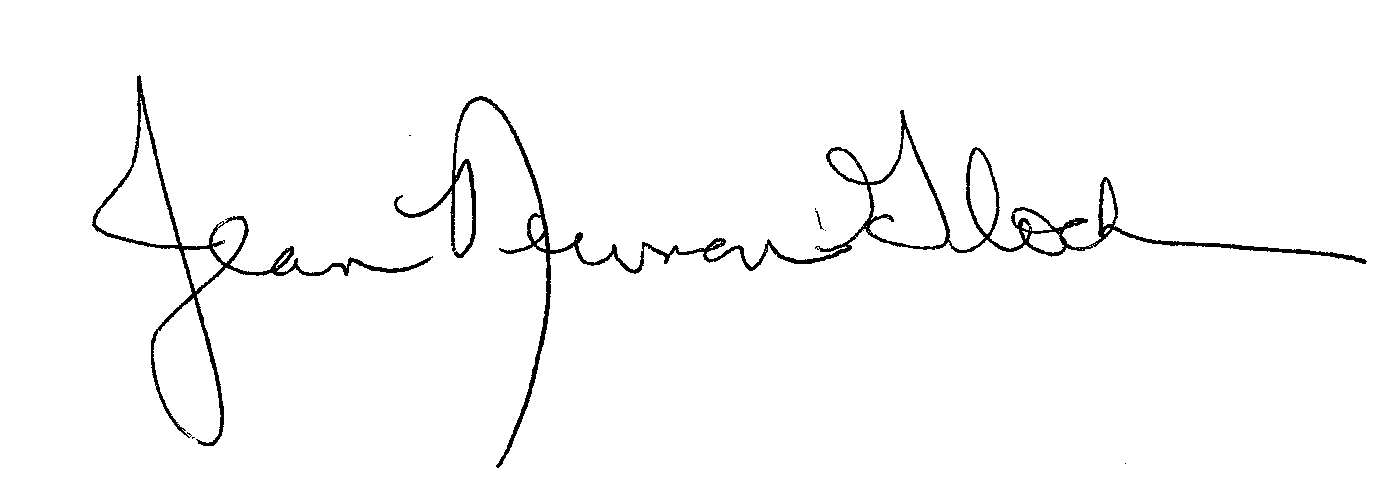 Jean Newman Glock